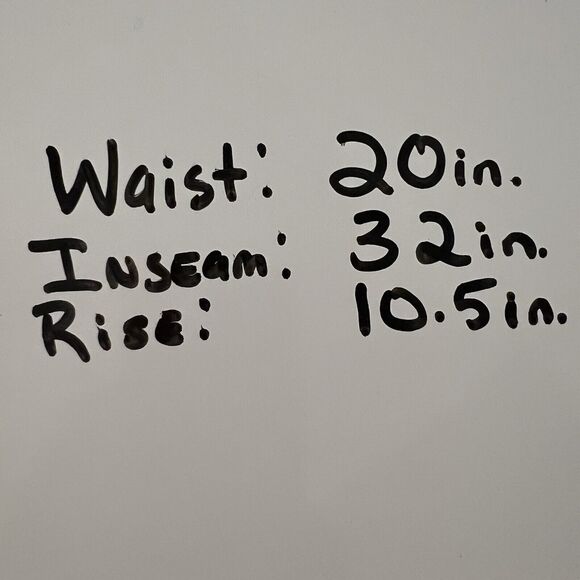 Waist: 20in.
Inseam: 32in.
Rise: 10.5in.